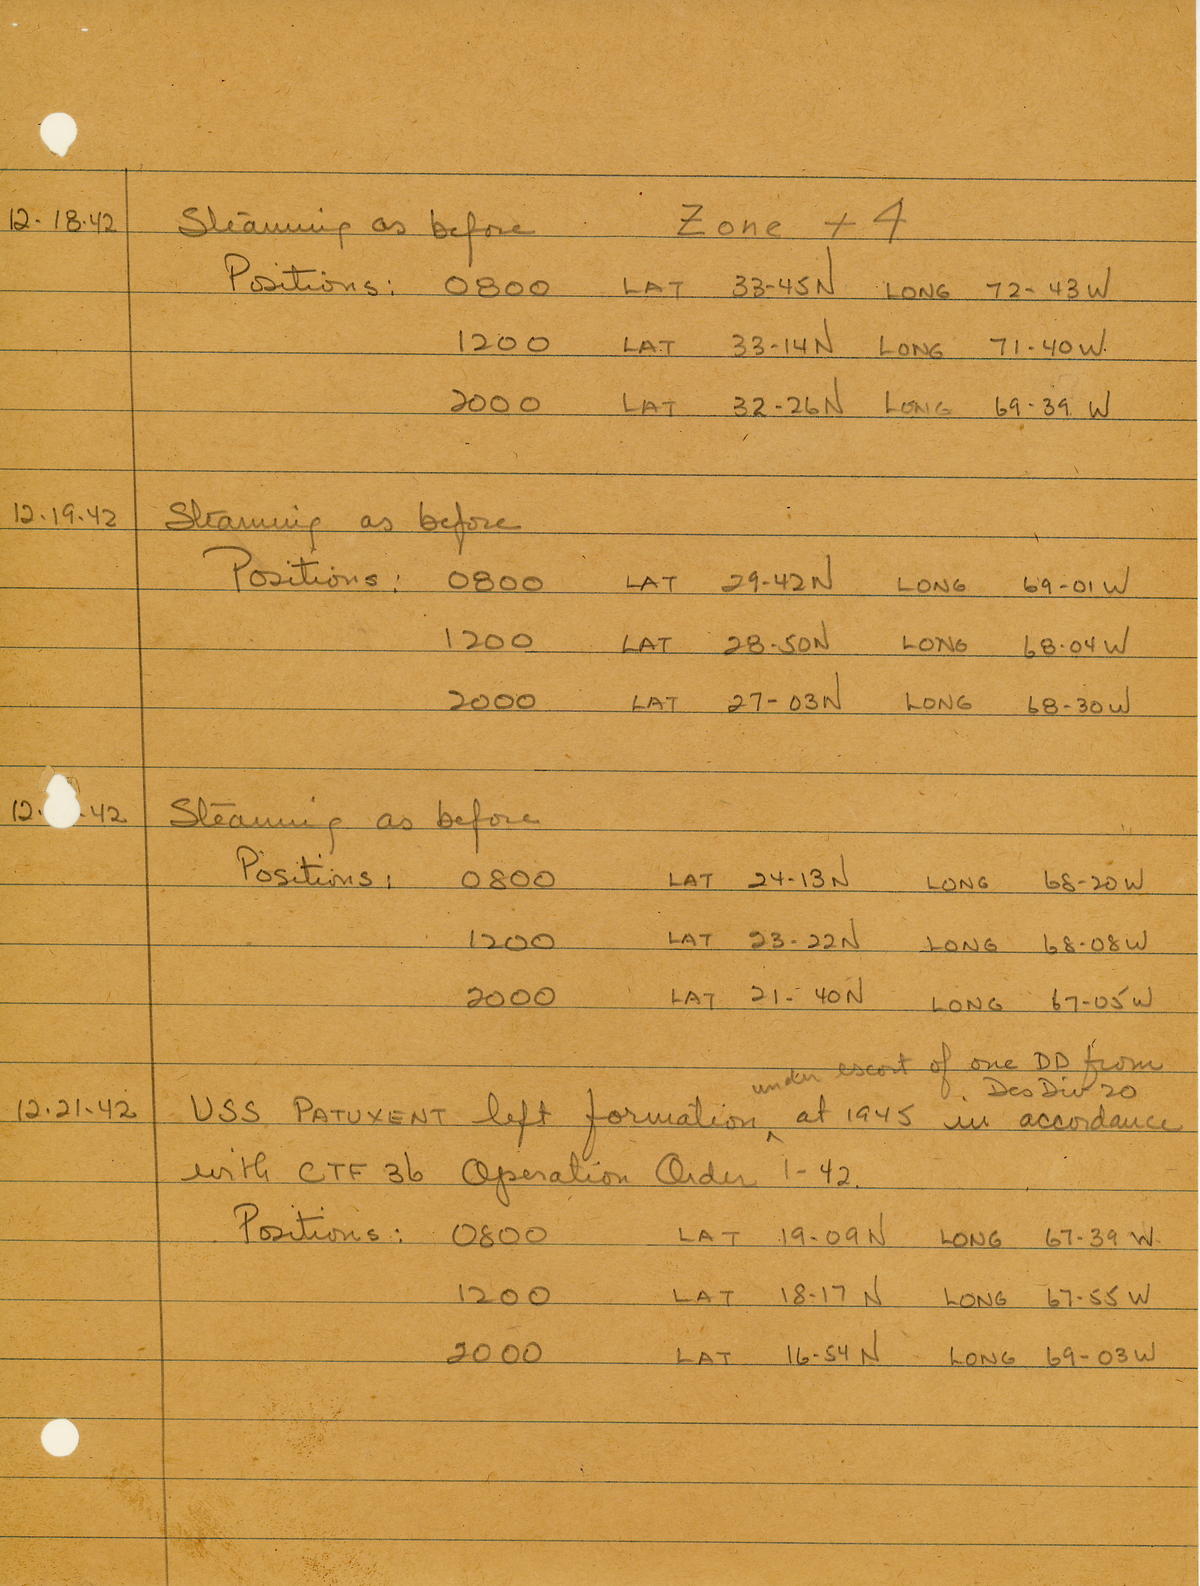 12-18-42 Steaming as before Zone + 4
Positions: 0800 LAT 33-45N LONG 72-43W
1200 LAT 33-14N LONG 71-40W.
2000 LAT 32-26N LONG 69-39 W
12-19-42 Steaming as before
Positions: 0800 LAT 29-42N LONG 69-01W
1200 LAT 28-50N LONG 68-04W
2000 LAT 27-03N LONG 68-30W
12- -42 Steaming as before
Positions: 0800 LAT 24-13N LONG 68-20W
1200 LAT 23-22N LONG 68-08W
2000 LAT 21-40N LONG 67-05W
under escort of one DD from
DesDiv 20
12-21-42 USS PATUXENT left formation ^ at 1945 in accordance
with CTF 36 Operation Order 1-42.
Positions: 0800 LAT 19-09N LONG 67-39 W.
1200 LAT 18-17 N LONG 67-55W
2000 LAT 16-54N LONG 69-03W